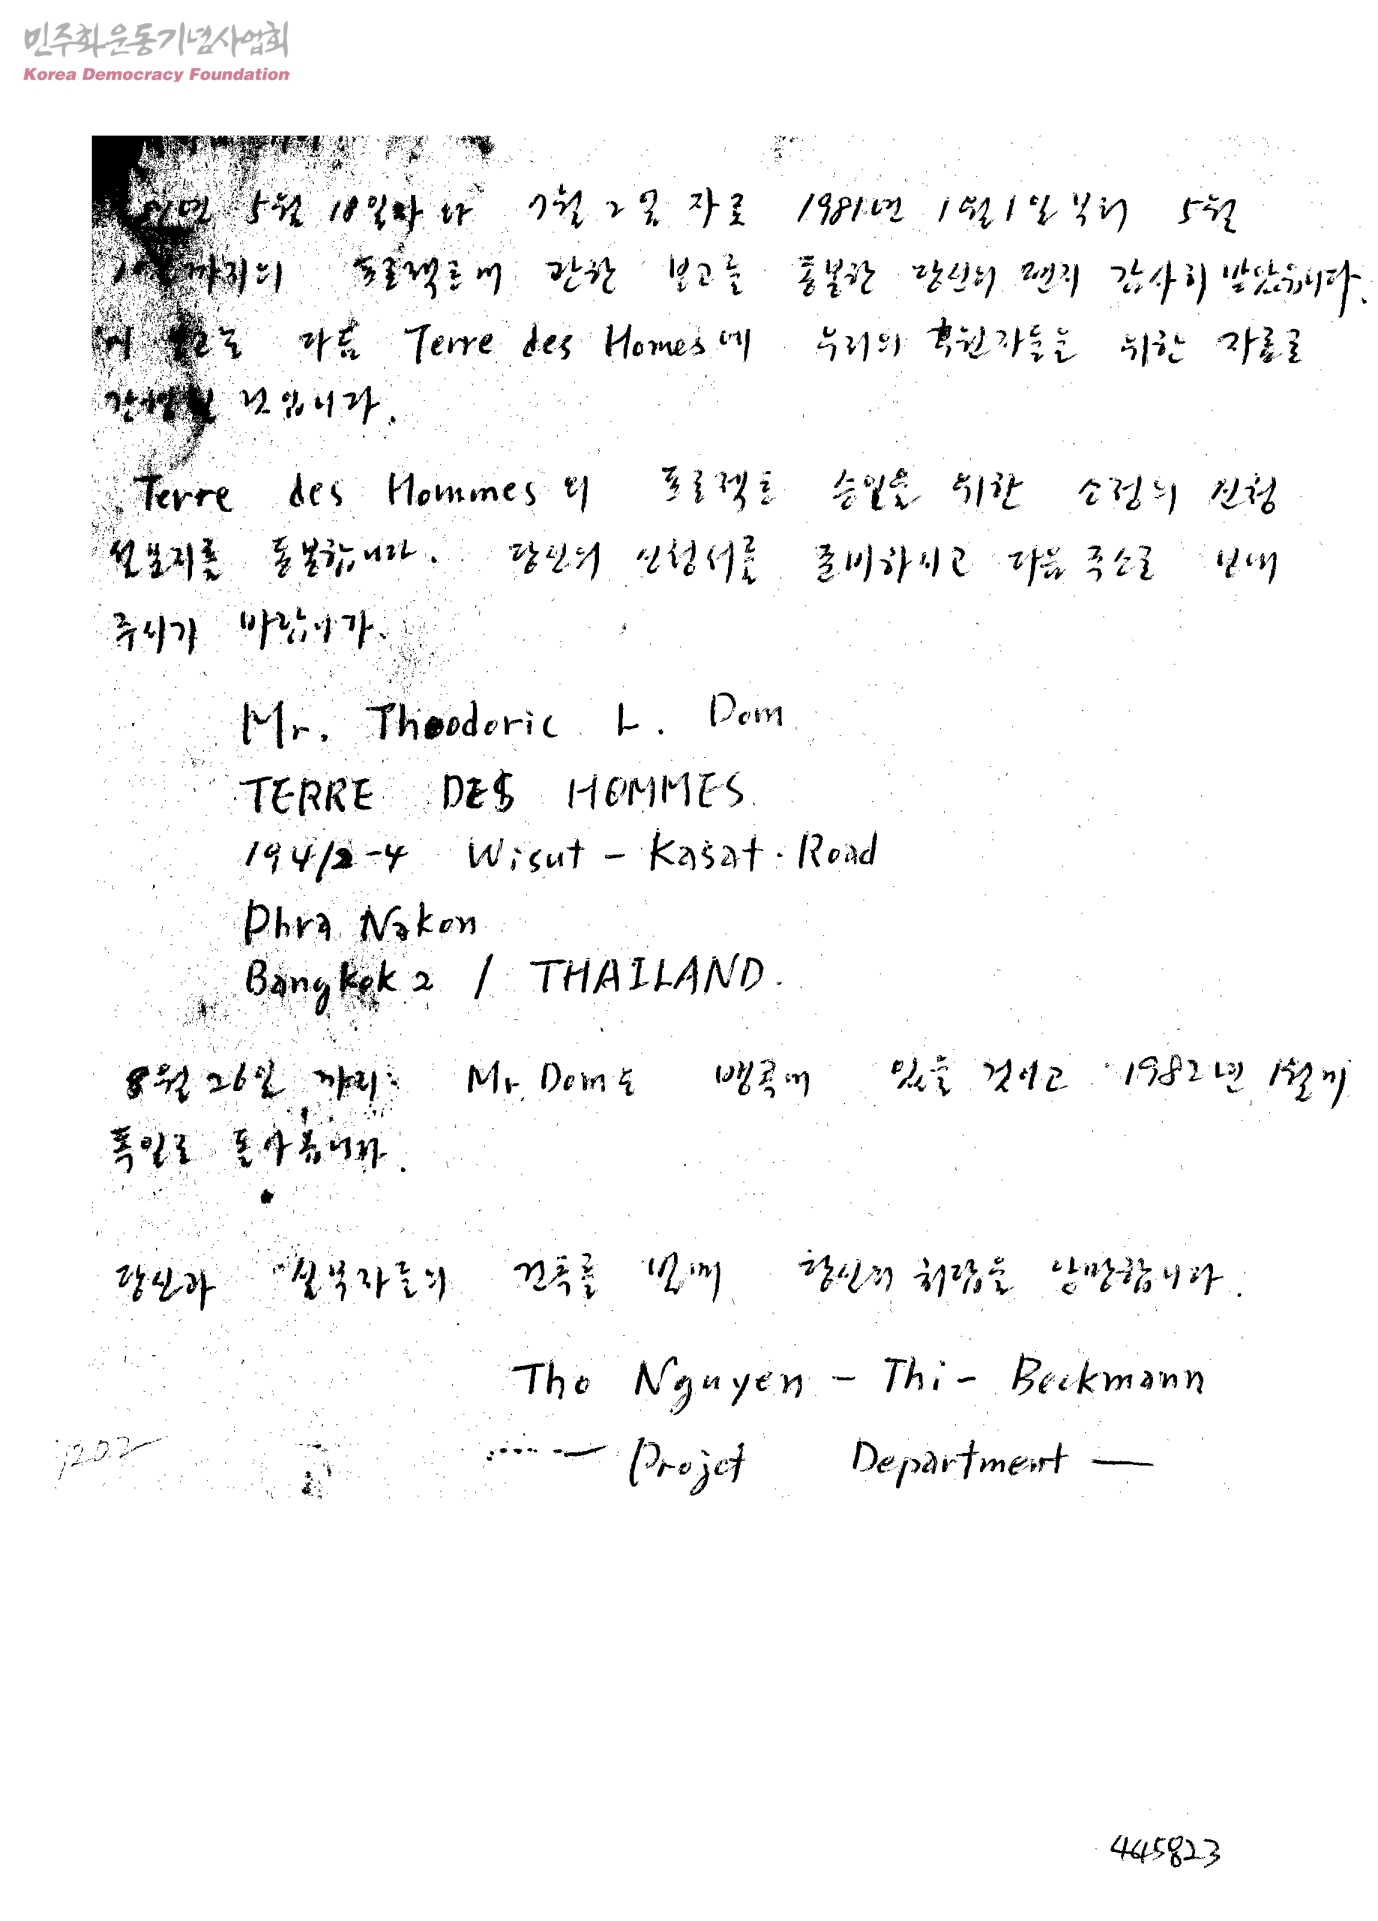 민주화운동기념사업회
Korea Democracy Foundation
5월 18일자와 7월 2일 자로 1981년 1월 1일부터 5월
까지의 프로젝트에 관한 보고를 동봉한 당신의 편지 감사히 받았습니다.
이 보고는 다음 Terre des Homes에 우리의 후원자들을 위한 자료로
것입니다.
Terre des Hommes의 프로젝트 승인을 위한 소정의 신청
설문지를 동봉합니다. 당신의 신청서를 준비하시고 다음 주소로 보내
주시기 바랍니다.
Mr. Theodoric L. Dom
TERRE DES HOMMES
194/2-4 Wisut - Kasat Road
Phra Nakon
Bangkok 2 / THAILAND.
8월 26일 까지 Mr. Dom은 뱅콕에 있을 것이고 1982년 1월에
독일로 돌아옵니다.
당신과 실무자들의 건투를 빌며 당신의 회답을 앙망합니다.
Tho Nguyen - Thi - Beckmann
Projet Department —
1202
445823